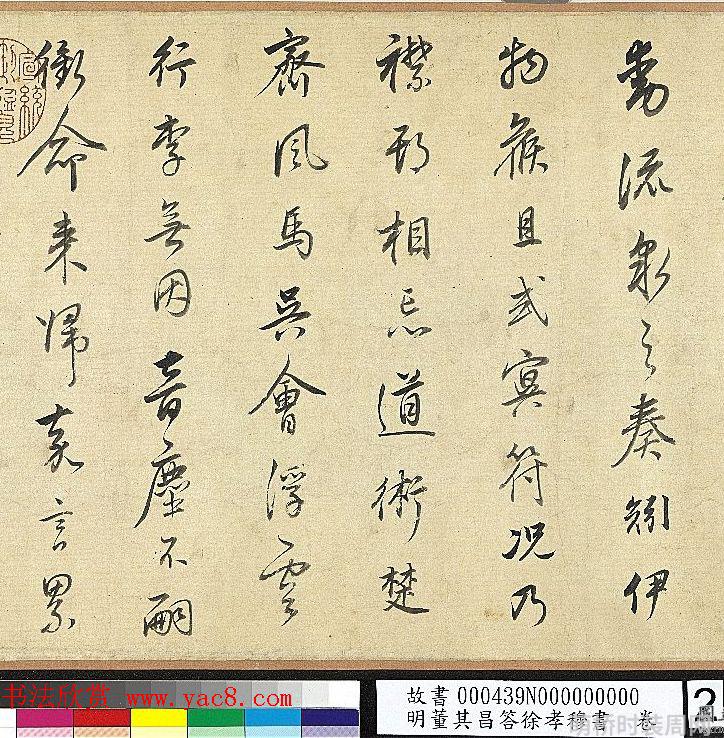 動流泉之奏矧伊
物候且或冥符况乃
襟期相忘道術楚
齊風馬吳會浮雲
行李無因音塵不嗣
銜命来歸嘉言累
書法欣赏 www.yac8.com
故書 000439N000000000
明董其昌答徐孝穆書 卷
2
圖